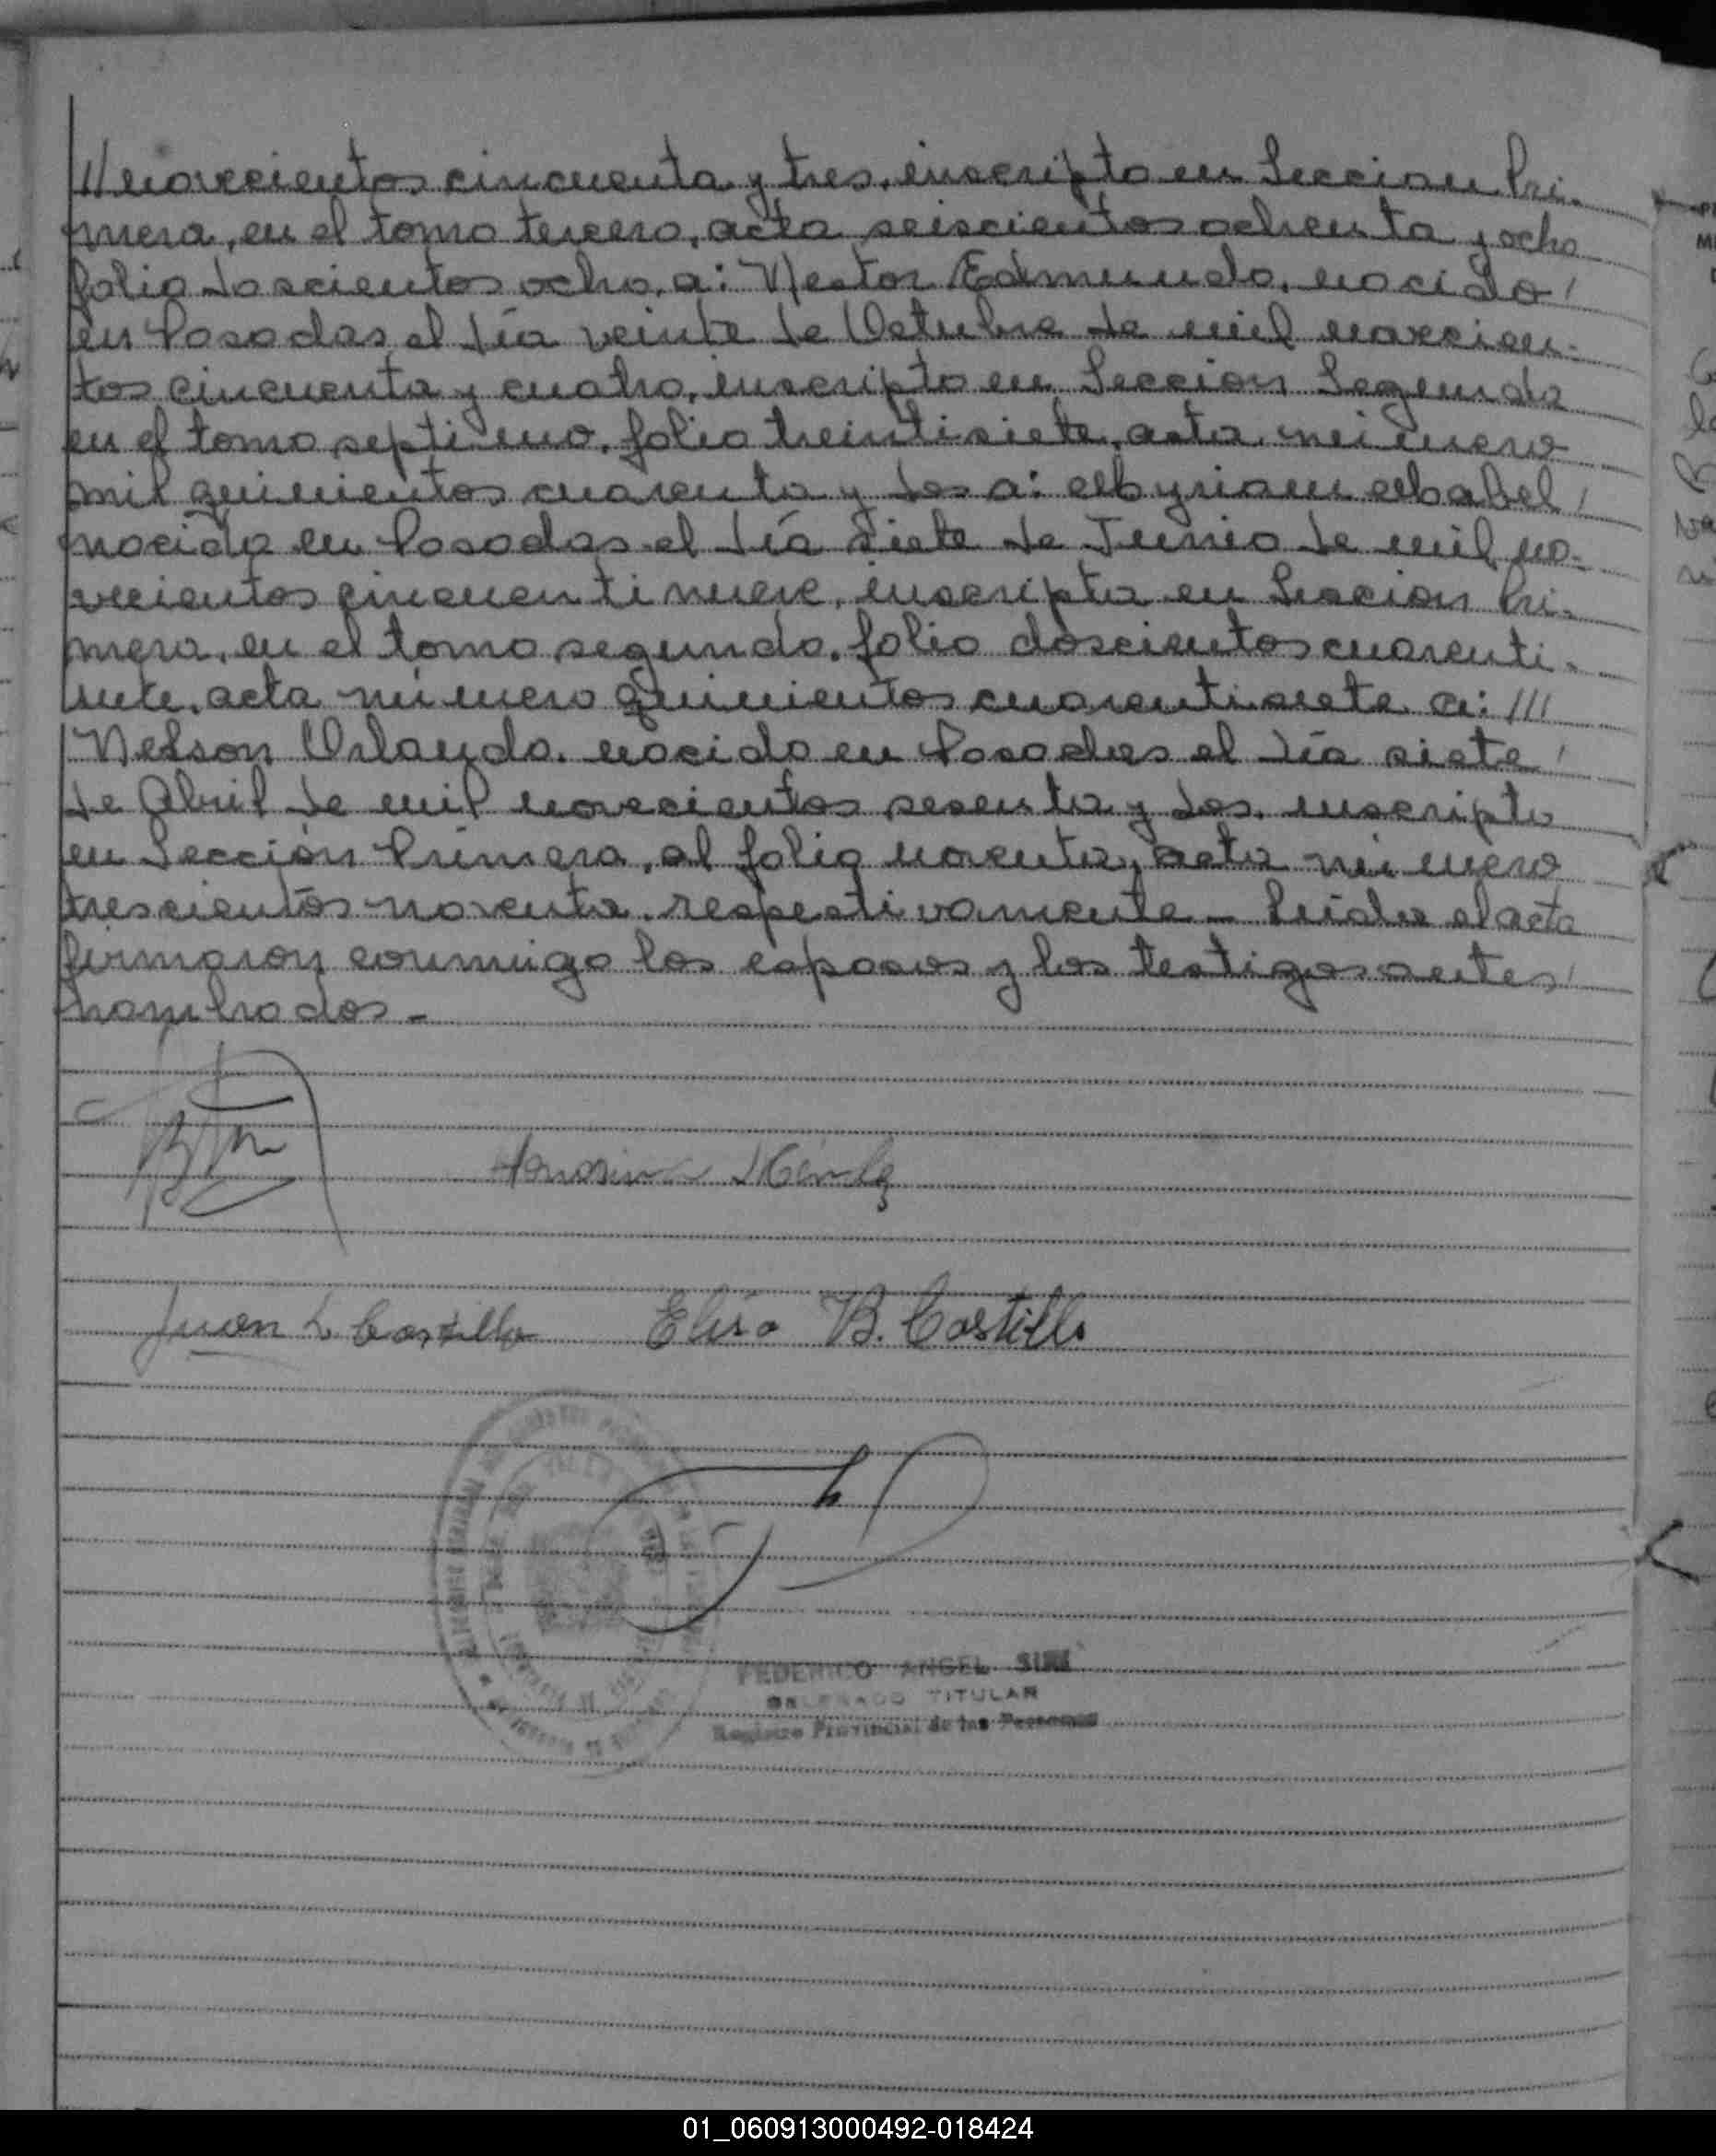 //novecientos cincuenta y tres, inscripto en Sección Pri-
mera, en el tomo tercero, acta seiscientos ochenta y ocho
folio doscientos ocho, a: Nestor Edmundo, nacido/
en Posadas el día veinte de Octubre de mil novecien-
tos cincuenta y cuatro, inscripto en Sección Segunda
en el tomo septimo, folio treintisiete, acta número
mil quinientos cuarenta y dos a: Myriam Mabel/
nacida en Posadas el día siete de Junio de mil no-
vecientos cincuentinueve, inscripta en Sección Pri-
mera, en el tomo segundo, folio doscientos cuarenti-
siete, acta número quinientos cuarentisiete a: ///
Nelson Orlando, nacido en Posadas el día siete/
de Abril de mil novecientos sesenta y dos, inscripto
en Sección Primera, al folio noventa, acta número
trescientos noventa, respectivamente - Leída el acta
firmaron conmigo los esposos y los testigos antes/
nombrados.-
Juan L Castillo Elisa B. Castillo
FEDERICO ANGEL
DELEGADO TITULAR
Registro Provincial de las Personas
01_060913000492-018424